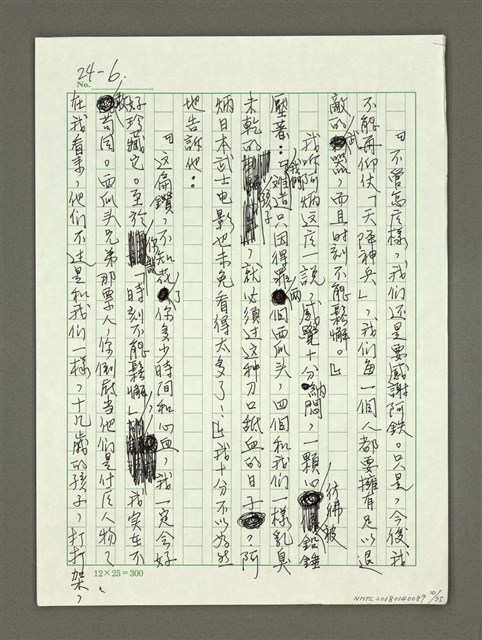 24-6.
No.
「不管怎庅樣，我们还是要感謝阿鉄。只是，今後我
不能再仰仗「天降神兵」，我们每一個人都要擁有足以退
敵的武器，而且时刻不能鬆懈。」
我听阿炳这庅一說，感覺十分納悶，一顆心彷彿被鉛錘
壓著：「難道我們只因得罪兩個西瓜头，四個和我们一樣乳臭
未乾的孩子，就必須过这种刀口舐血的日子？阿
炳日本武士电影也未免看得太多了！」我十分不以为然
地告訴他：
「这扁鑽，不知花了你多少時间和心血，我一定会好
好珍藏它。至於你說「時刻不能鬆懈」，我实在不
敢苟同。西瓜头兄弟那票人，你倒底当他们是什庅人物？
在我看來，他们不过是和我们一樣，十几歲的孩子，打打架，
12×25=300
NMTL20180140089 10/25